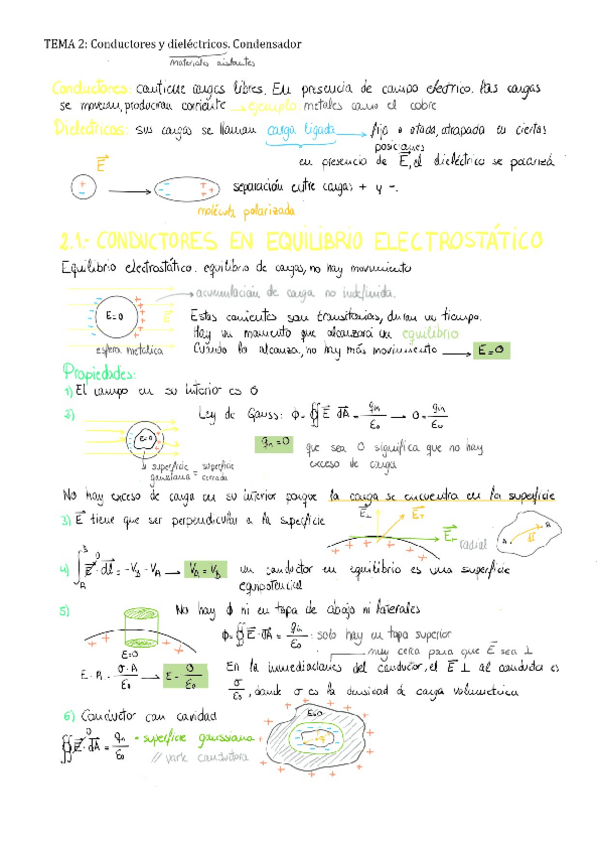 TEMA 2: Conductores y dieléctricos. Condensador
materiales aislantes
Conductores: contiene cargas libres. En presencia de campo eléctrico. las cargas
se mueven, producirán corriente → ejemplo metales como el cobre
Dieléctricos: sus cargas se llaman carga ligada → fija o atada, atrapada en ciertas
posiciones
E
en presencia de E, el dieléctrico se polarizá
separación entre cargas + y -.
molécula polarizada
2.1.- CONDUCTORES EN EQUILIBRIO ELECTROSTÁTICO
Equilibrio electrostático: equilibrio de cargas, no hay movimiento
→ acumulación de carga no indefinida.
E=0
Estas corrientes son transitorias, duran un tiempo.
Hay un momento que alcanzará un equilibrio
esfera metálica
Cuándo lo alcanza, no hay más movimiento → E=0
Propiedades:
1) El campo en su interior es 0
2)
Ley de Gauss: Φ=∯E dA = qin/ε0 → 0= qin/ε0
E=0
qin=0
que sea 0 significa que no hay
exceso de carga
superficie gaussiana = superficie cerrada
No hay exceso de carga en su interior porque la carga se encuentra en la superficie
3) E tiene que ser perpendicular a la superficie
E⊥
ET
ET
radial
A
B
dl
4) ∫ E·dl = -VB - VA → VA = VB un conductor en equilibrio es una superficie
equipotencial
5)
No hay Φ ni en tapa de abajo ni laterales
Φ=∯E·dA = qin/ε0 : solo hay en tapa superior
muy cerca para que E sea ⊥
E=0
E·A = σ·A/ε0 → E = σ/ε0
En la inmediaciones del conductor, el E ⊥ al conductor es
σ/ε0, donde σ es la densidad de carga volumétrica
6) Conductor con cavidad
E=0
∯E·dA = qin/ε0
• superficie gaussiana
// parte conductora